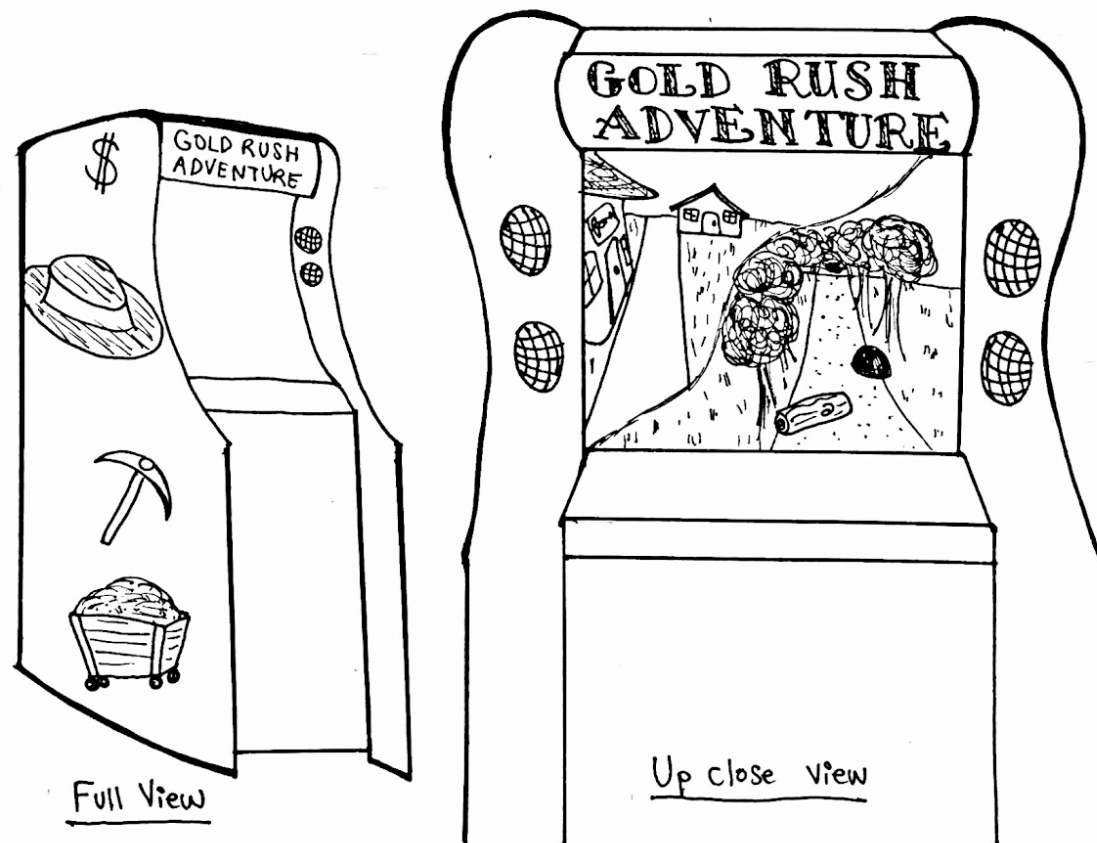 $
GOLD RUSH
ADVENTURE
Full View
GOLD RUSH
ADVENTURE
Up close view